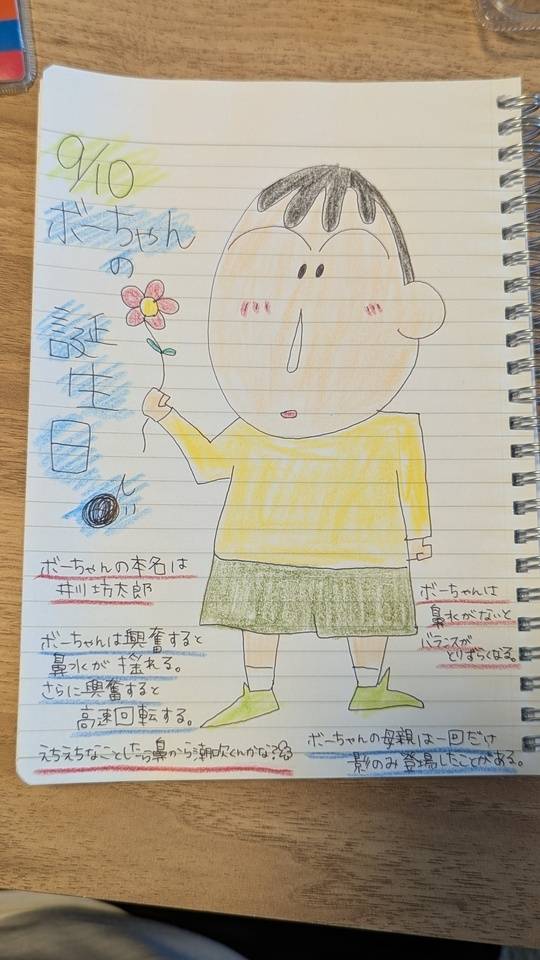 9/10
ボーちゃん
の
誕
生
日
ボーちゃんの本名は
井川坊太郎
ボーちゃんは興奮すると
鼻水が揺れる。
さらに興奮すると
高速回転する。
ボーちゃんは
鼻水がないと
バランスが
とりずらくなる。
ボーちゃんの母親は一回だけ
影のみ登場したことがある。